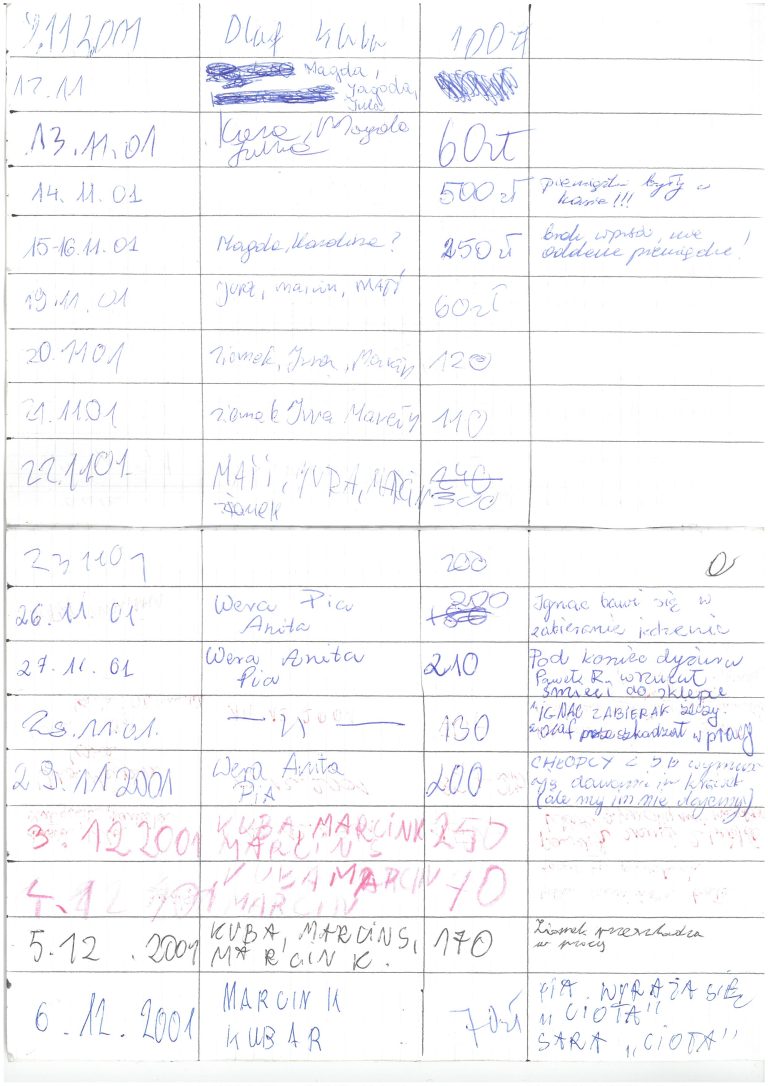 9.11.2001 Olaf Kuba 100 zł
12.11 Magda,
Jagoda,
Jula
13.11.01 Kasia, Magda 60zł
Julka
14.11.01 500 zł pieniądze były w
kasie!!!
15-16.11.01 Magda, Karolina? 250 zł brak wpisu, nie
oddane pieniądze!
19.11.01 Jura, Marcin, MATI 60zł
20.11 01 ziomek, Jura, Marcin 120
21.1101 ziomek Jura Marcin 110
22.11.01. MATI, JURA, MARCIN 240
ziomek 300
23 1101 200
26.11.01 Wera Pia 200 Ignac bawi się w
Anita +50 zabieranie jedzenia
27.11.01 Wera Anita 210 Pod koniec dyżuru
Pia Paweł R. wrzucał
śmieci do sklepu
28.11.01. — 11 — 130 IGNAC ZABIERAŁ
Olaf przeszkadzał w pracy
29.112001 Wera Anita 200 CHŁOPCY Z
PiA dawania im
(ale my im nie dajemy)
3.12 2001 KUBA, MARCIN K 250
MARCIN S
4.12 2001 KUBA MARCIN 70
MARCIN
5.12.2001 KUBA, MARCIN S, 170 Ziomek przeszkadza
MARCIN K. w pracy
6.12.2001 MARCIN K 70zł PIA WYRAŻA SIĘ
KUBA R „CIOTA"
SARA „CIOTA"